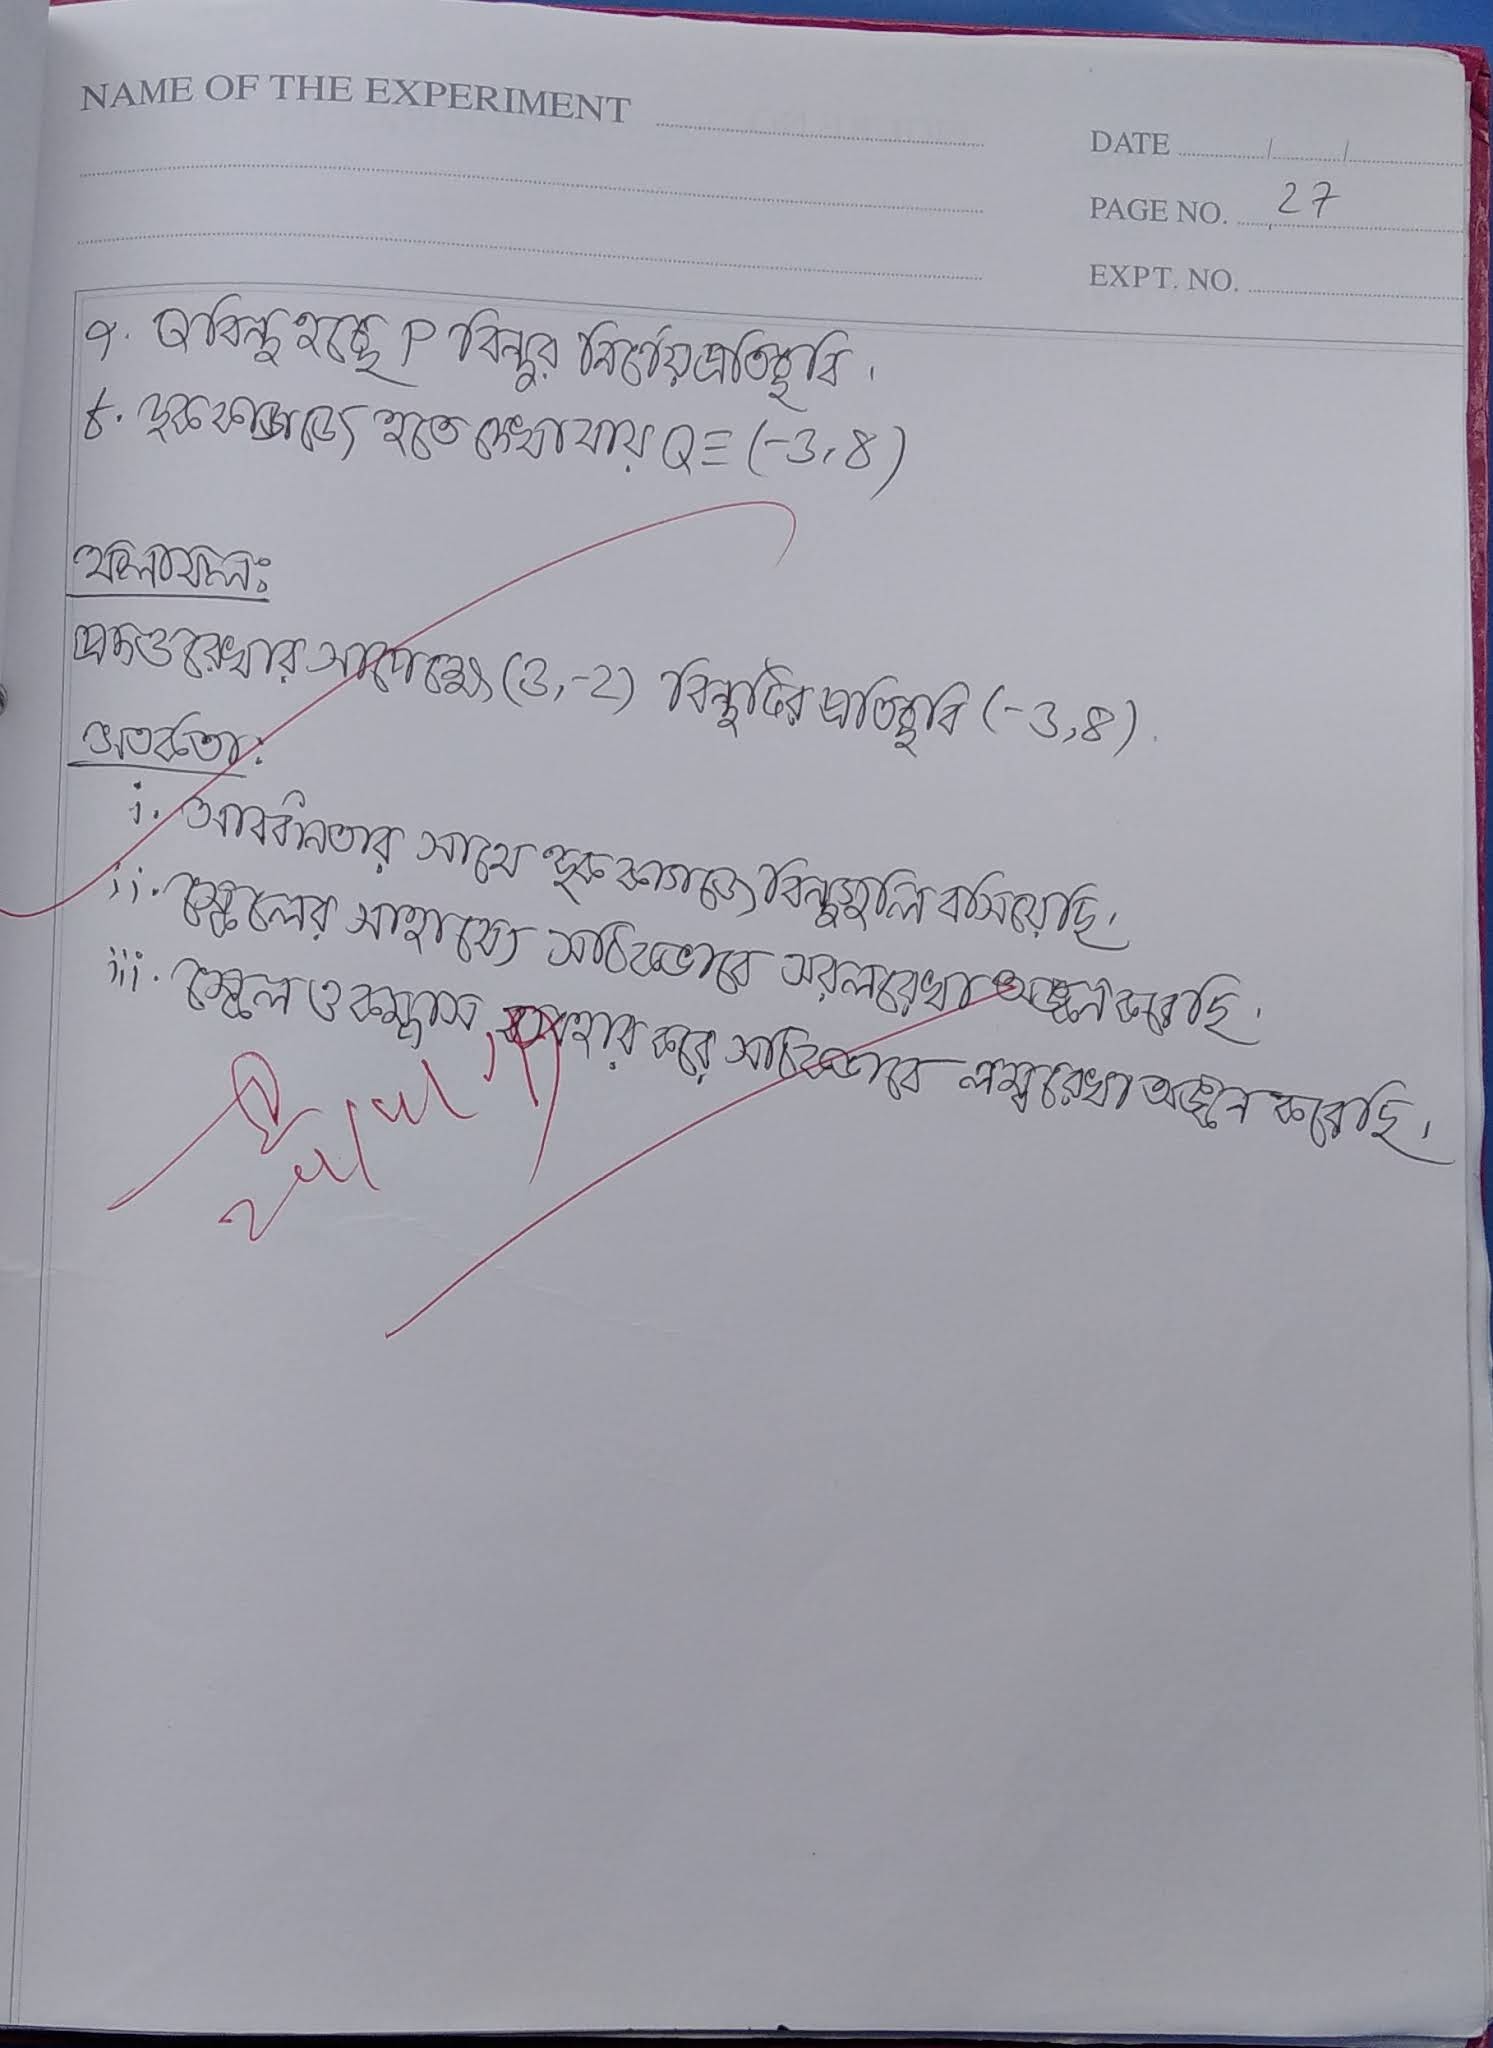 NAME OF THE EXPERIMENT
DATE / /
PAGE NO. 27
EXPT. NO.
৭. Q বিন্দু হচ্ছে P বিন্দুর নির্ণেয় প্রতিচ্ছবি।
৮. ছক কাগজে হতে দেখা যায় Q ≡ (-3, 8)
ফলাফল:
প্রদত্ত রেখার সাপেক্ষে (3, -2) বিন্দুটির প্রতিচ্ছবি (-3, 8).
সতর্কতা:
i. সাবধানতার সাথে ছক কাগজে বিন্দুগুলি বসিয়েছি।
ii. স্কেলের সাহায্যে সঠিকভাবে সরলরেখা অঙ্কন করেছি।
iii. স্কেল ও কম্পাস ব্যবহার করে সঠিকভাবে লম্বরেখা অঙ্কন করেছি।